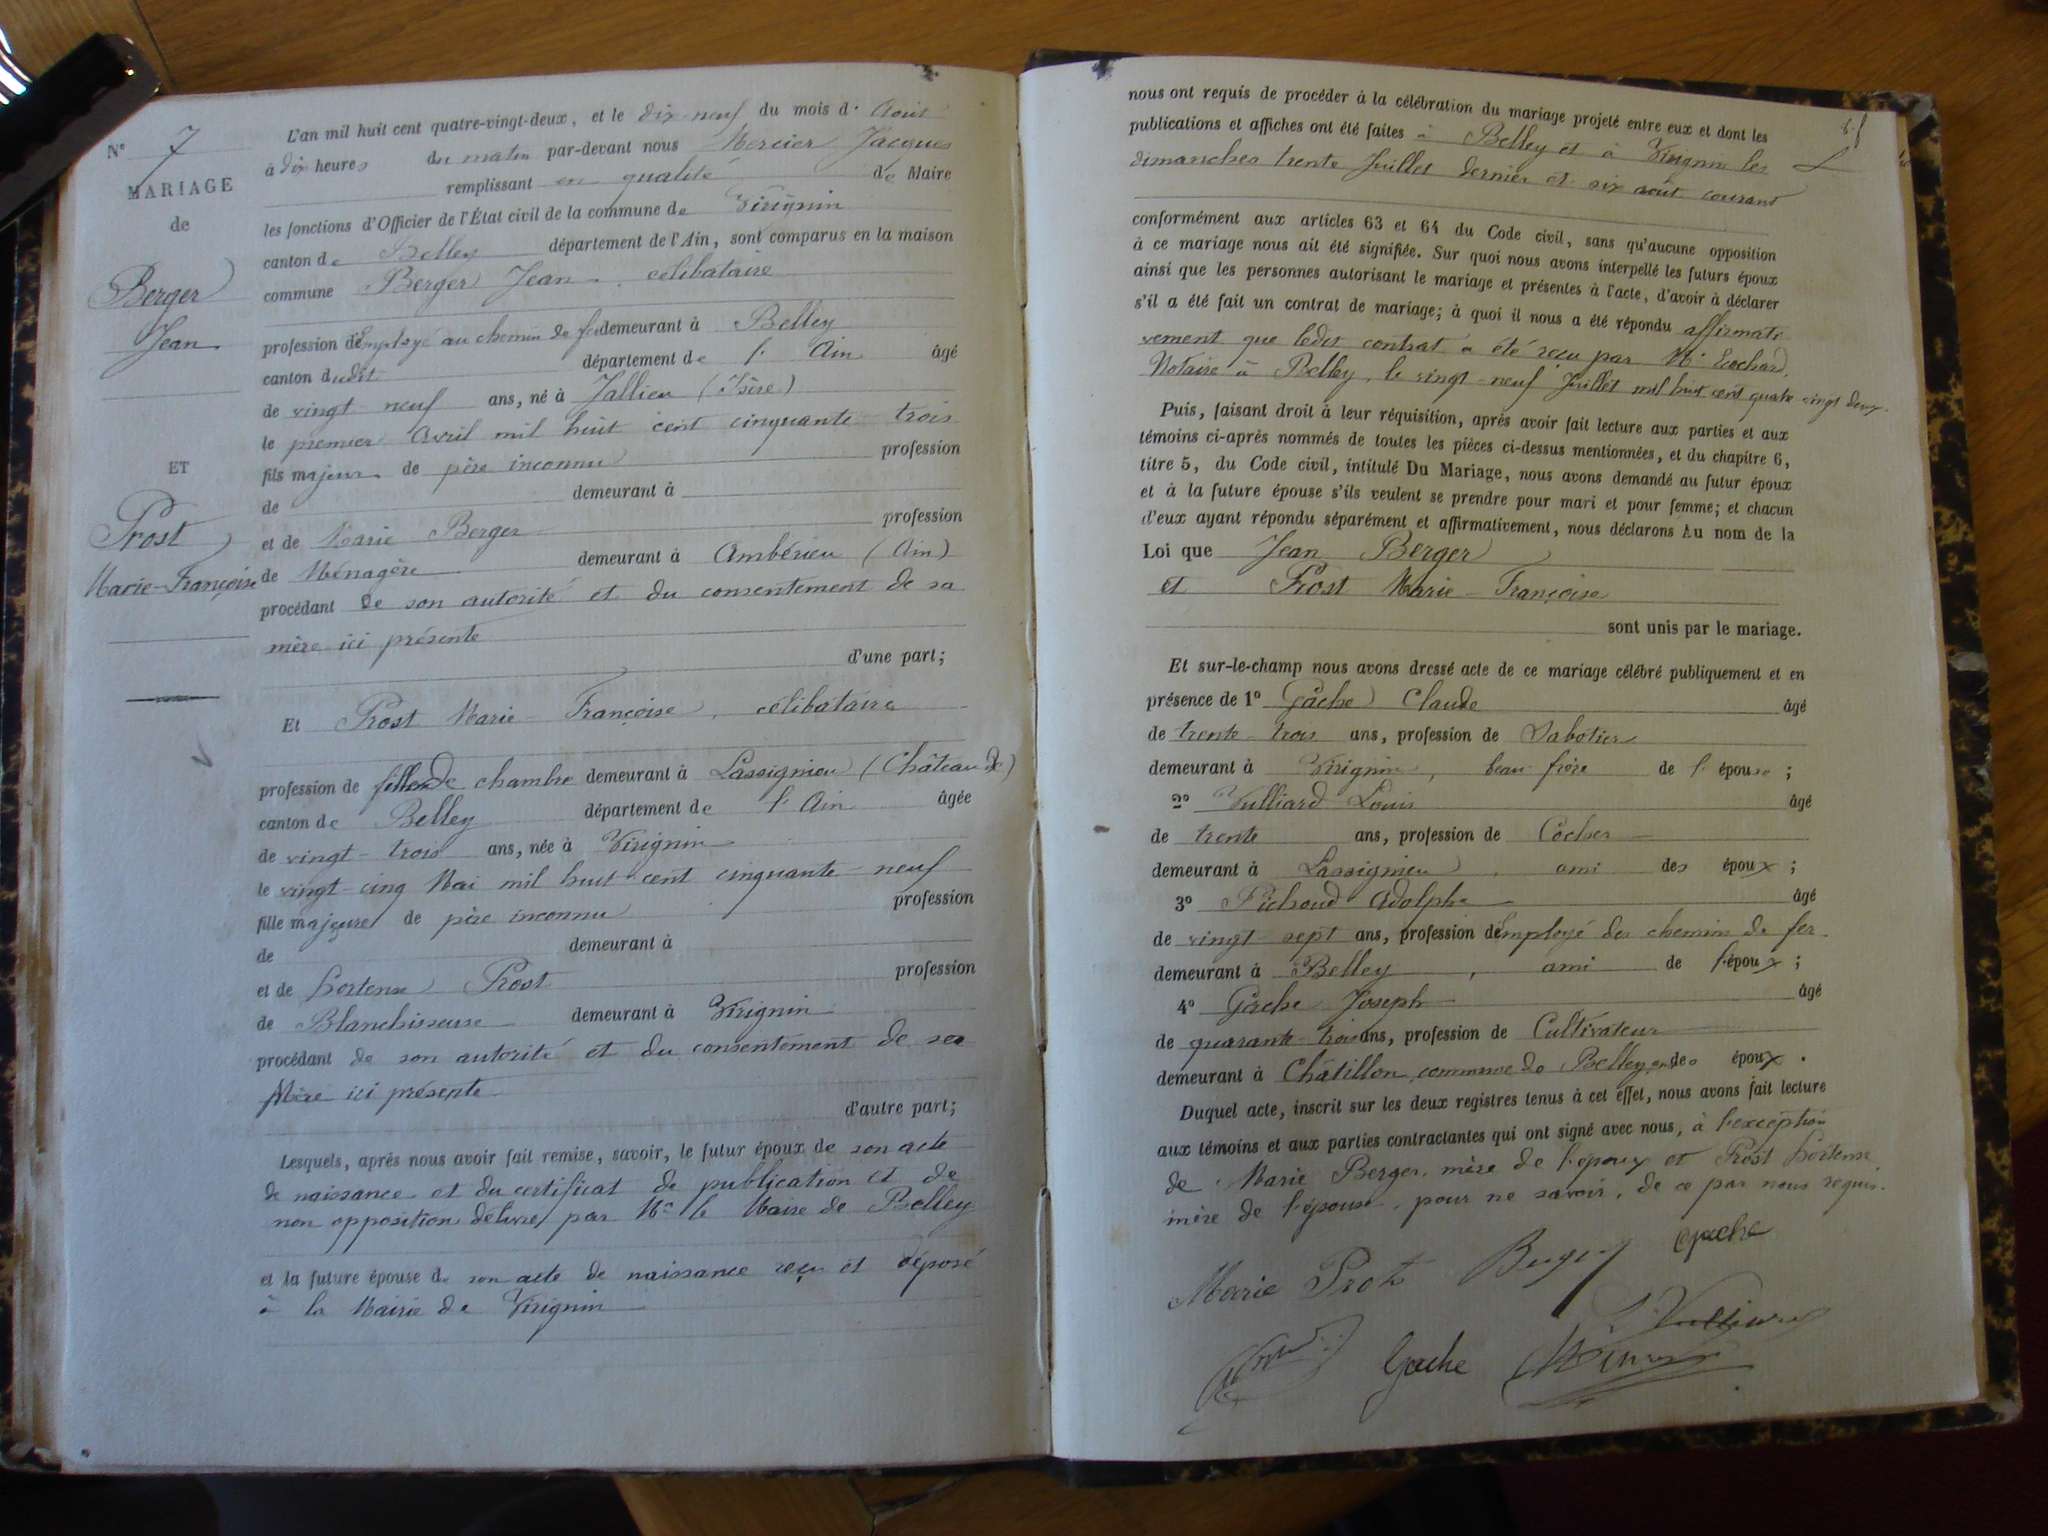 N° 7
MARIAGE
de
Berger
Jean
ET
Prost
Marie-Françoise
L'an mil huit cent quatre-vingt-deux, et le dix-neuf du mois d' Août
à dix heures du matin par-devant nous Mercier Jacques
remplissant en qualité de Maire
les fonctions d'Officier de l'État civil de la commune de Virignin
canton de Belley département de l'Ain, sont comparus en la maison
commune Berger Jean, célibataire
profession de Employé au chemin de fer demeurant à Belley
canton dudit département de l'Ain âgé
de vingt-neuf ans, né à Jallieu (Isère)
le premier Avril mil huit cent cinquante-trois
fils majeur de père inconnu profession
de demeurant à
et de Marie Berger profession
de Ménagère demeurant à Ambérieu (Ain)
procédant de son autorité et du consentement de sa
mère ici présente
d'une part;
Et Prost Marie-Françoise, célibataire
profession de fille de chambre demeurant à Lassignieu (Château de)
canton de Belley département de l'Ain âgée
de vingt-trois ans, née à Virignin
le vingt-cinq Mai mil huit cent cinquante-neuf
fille majeure de père inconnu profession
de demeurant à
et de Hortense Prost profession
de Blanchisseuse demeurant à Virignin
procédant de son autorité et du consentement de sa
Mère ici présente
d'autre part;
Lesquels, après nous avoir fait remise, savoir, le futur époux de son acte
de naissance et du certificat de publication et de
non opposition délivré par Mr le Maire de Belley
et la future épouse de son acte de naissance reçu et déposé
à la Mairie de Virignin
nous ont requis de procéder à la célébration du mariage projeté entre eux et dont les
publications et affiches ont été faites à Belley et à Virignin les
dimanches trente Juillet dernier et six août courant
conformément aux articles 63 et 64 du Code civil, sans qu'aucune opposition
à ce mariage nous ait été signifiée. Sur quoi nous avons interpellé les futurs époux
ainsi que les personnes autorisant le mariage et présentes à l'acte, d'avoir à déclarer
s'il a été fait un contrat de mariage; à quoi il nous a été répondu affirmati-
vement que ledit contrat a été reçu par Me Cochard,
Notaire à Belley, le vingt-neuf Juillet mil huit cent quatre vingt deux.
Puis, faisant droit à leur réquisition, après avoir fait lecture aux parties et aux
témoins ci-après nommés de toutes les pièces ci-dessus mentionnées, et du chapitre 6,
titre 5, du Code civil, intitulé Du Mariage, nous avons demandé au futur époux
et à la future épouse s'ils veulent se prendre pour mari et pour femme; et chacun
d'eux ayant répondu séparément et affirmativement, nous déclarons Au nom de la
Loi que Jean Berger
et Prost Marie-Françoise
sont unis par le mariage.
Et sur-le-champ nous avons dressé acte de ce mariage célébré publiquement et en
présence de 1° Gâche Claude âgé
de trente-trois ans, profession de Sabotier
demeurant à Virignin, beau frère de l'épouse;
2° Vulliard Louis âgé
de trente ans, profession de Cocher
demeurant à Lassignieu, ami des époux;
3° Pichoud Adolphe âgé
de vingt-sept ans, profession de Employé des chemin de fer
demeurant à Belley, ami de l'époux;
4° Gâche Joseph âgé
de quarante-trois ans, profession de Cultivateur
demeurant à Châtillon, commune de Belley, des époux.
Duquel acte, inscrit sur les deux registres tenus à cet effet, nous avons fait lecture
aux témoins et aux parties contractantes qui ont signé avec nous, à l'exception
de Marie Berger, mère de l'époux et Prost Hortense
mère de l'épouse, pour ne savoir, de ce par nous requis.
Marie Prost Berger Gache
L. Vulliard
Gache Mercier